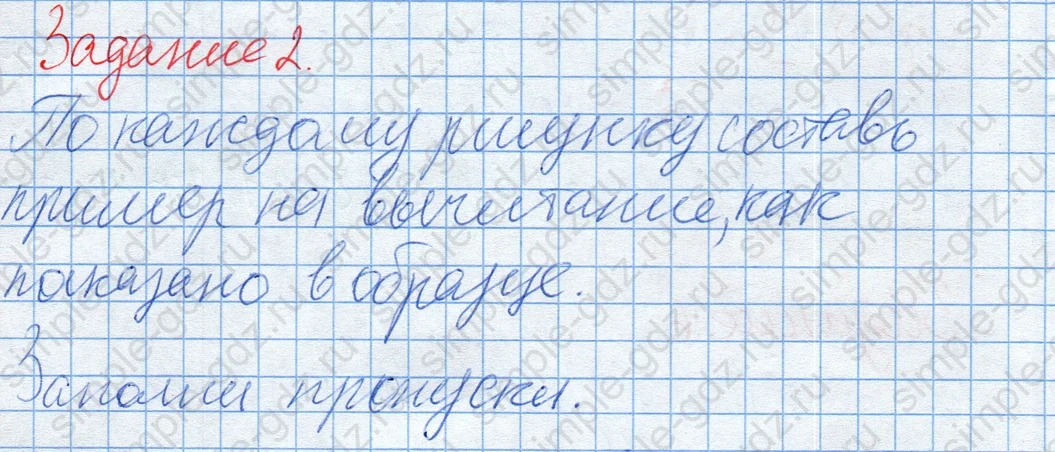 Задание 2.
По каждому рисунку составь
пример на вычитание, как
показано в образце.
Заполни пропуски.